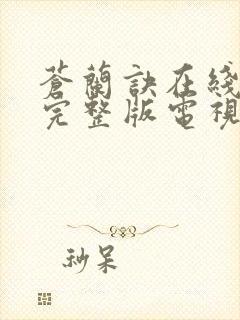 蒼蘭訣在綫
完整版電視
秒呆